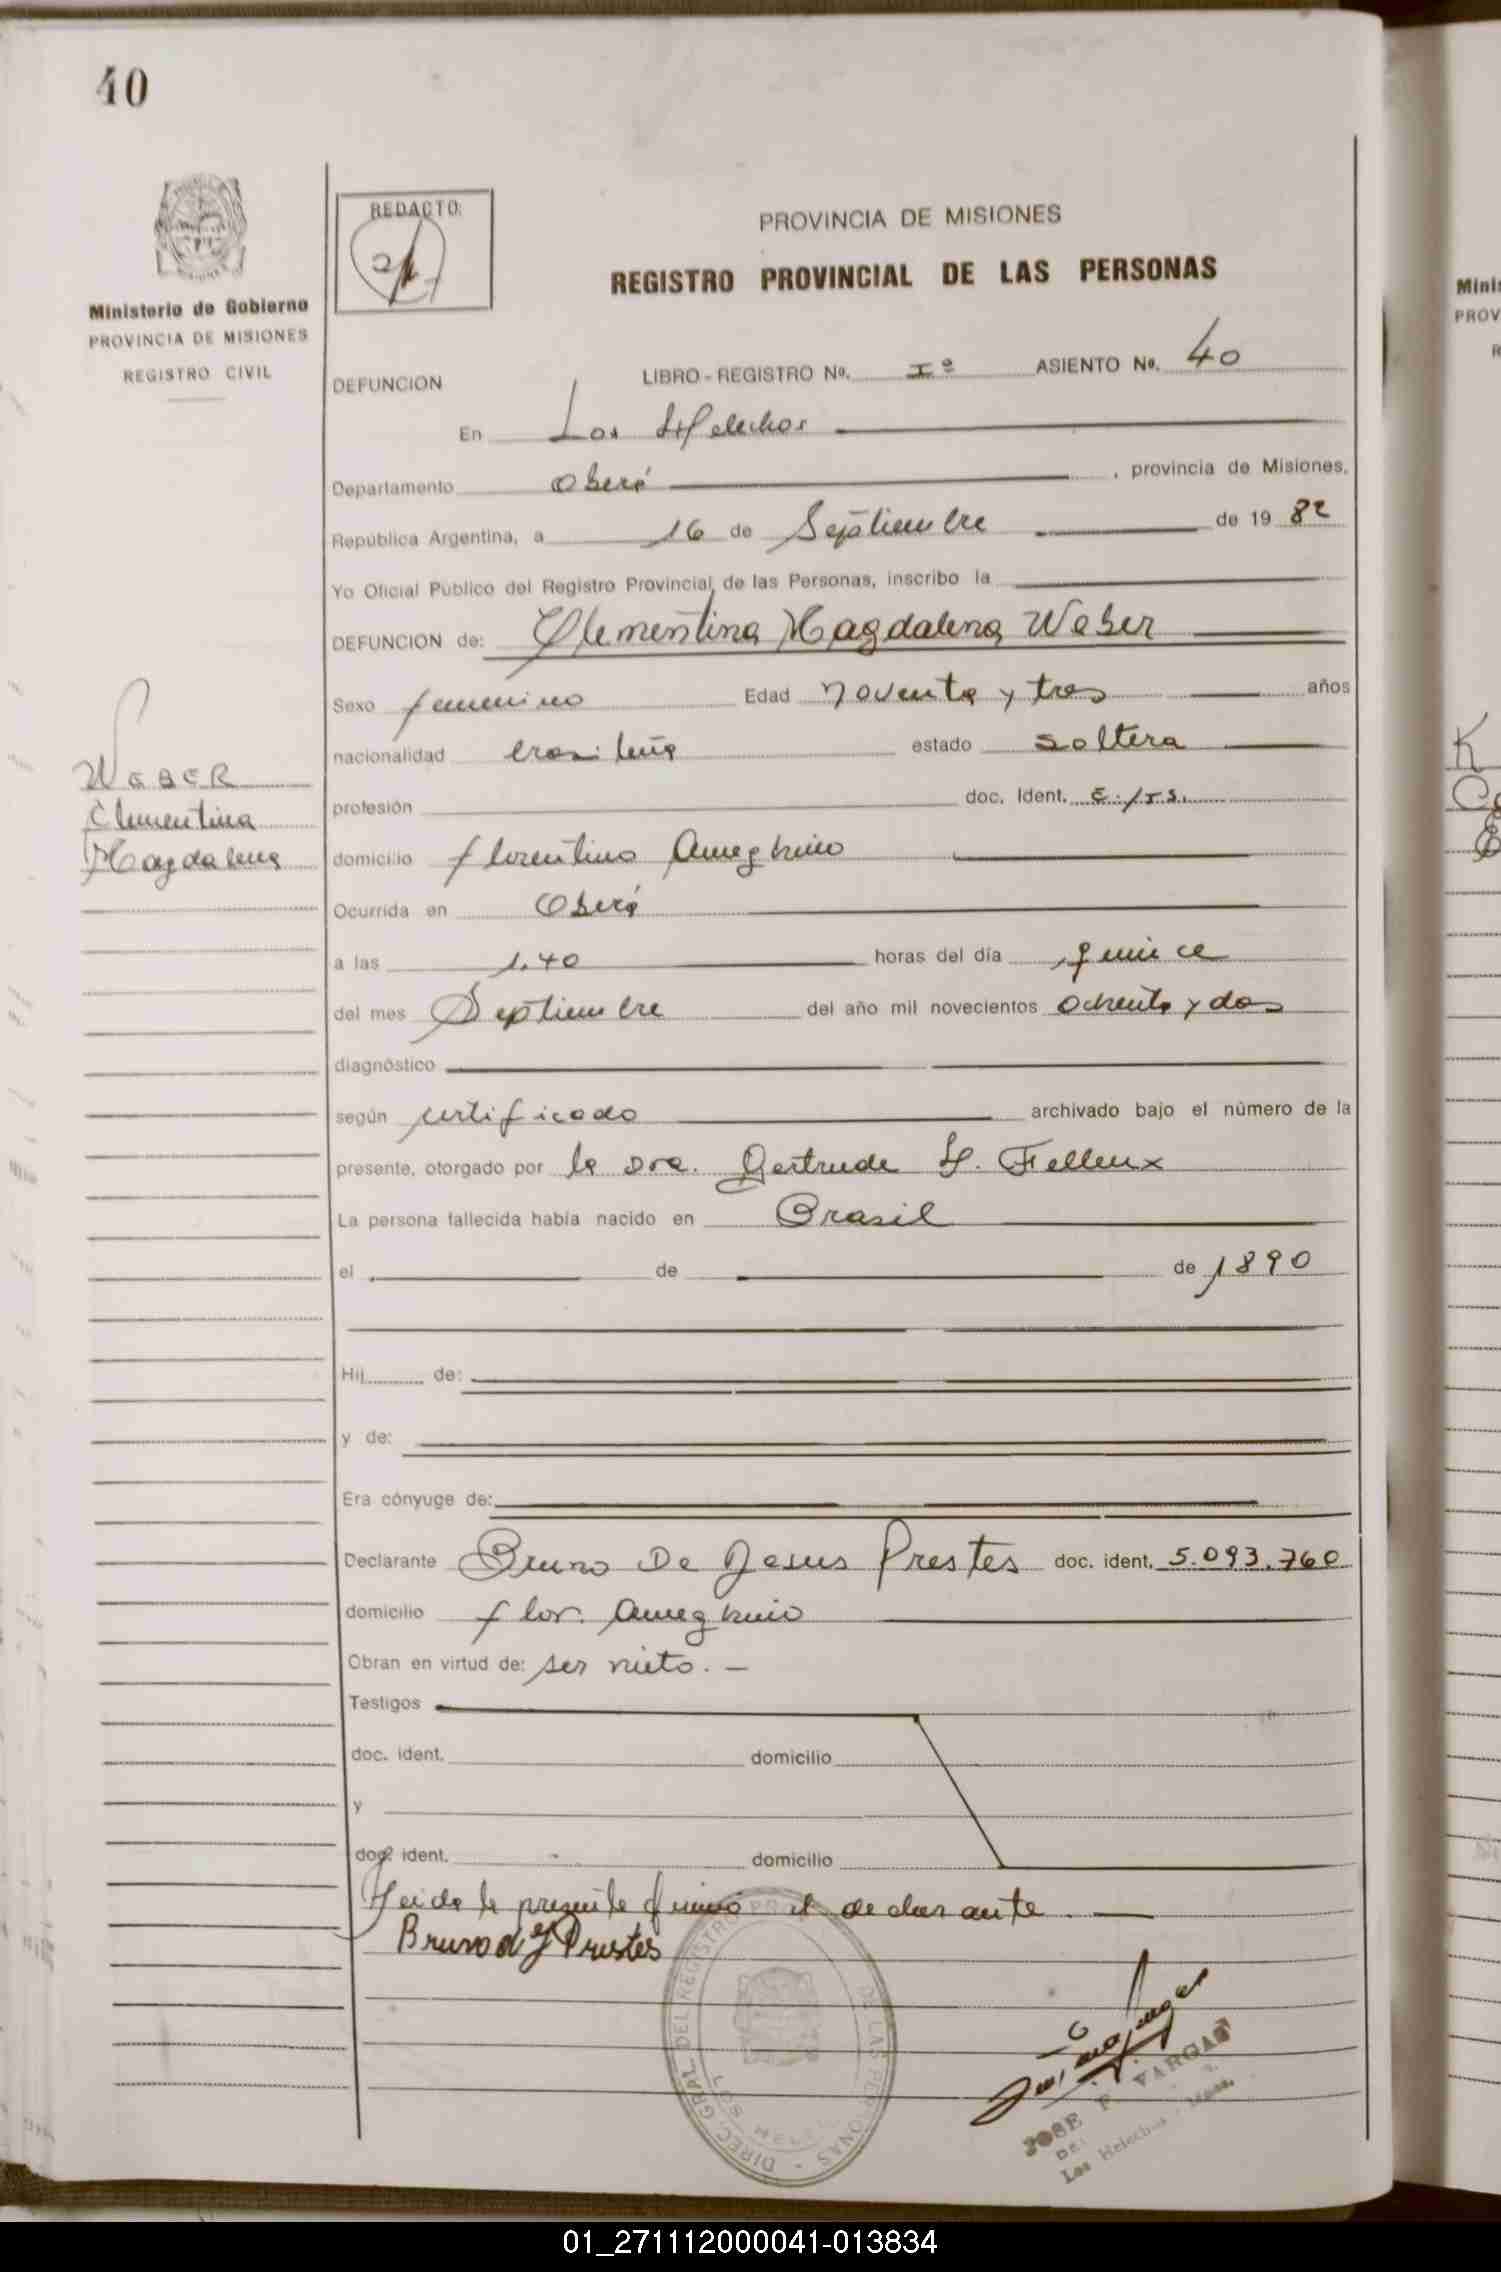 40
Ministerio de Gobierno
PROVINCIA DE MISIONES
REGISTRO CIVIL
REDACTO:
PROVINCIA DE MISIONES
REGISTRO PROVINCIAL DE LAS PERSONAS
DEFUNCION LIBRO - REGISTRO Nº. Iº ASIENTO Nº. 40
En Los Helechos
Departamento Oberá , provincia de Misiones,
República Argentina, a 16 de Septiembre de 19 82
Yo Oficial Público del Registro Provincial de las Personas, inscribo la
DEFUNCION de: Clementina Magdalena Weber
Sexo femenino Edad noventa y tres años
nacionalidad brasileña estado soltera
WEBER
Clementina
Magdalena
profesión doc. Ident.
domicilio florentino Ameghino
Ocurrida en Oberá
a las 1.40 horas del día quince
del mes Septiembre del año mil novecientos ochenta y dos
diagnóstico
según certificado archivado bajo el número de la
presente, otorgado por la Dra. Gertrude H.
La persona fallecida había nacido en Brasil
el de de 1890
Hij de:
y de:
Era cónyuge de:
Declarante Bruno De Jesus Prestes doc. ident. 5.093.760
domicilio flor. Ameghino
Obran en virtud de: ser nieto. —
Testigos
doc. ident. domicilio
y
doc. ident. domicilio
Leida la presente firmó el declarante.
Bruno d J Prestes
DIREC. GRAL. DEL REGISTRO DE LAS PERSONAS
JOSE F. VARGAS
DEL
Los Helechos - Mnes.
01_271112000041-013834